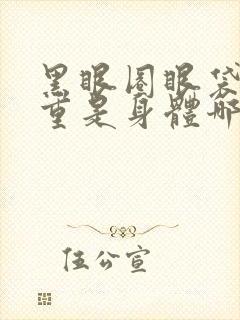 黑眼圈眼袋
重是身體哪
伍公宣